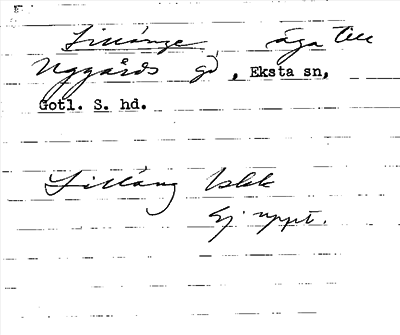 Lillänge äga till
Uggårds gd, Eksta sn,
Gotl. S. hd.
Lilläng Iskk
Ej uppt.